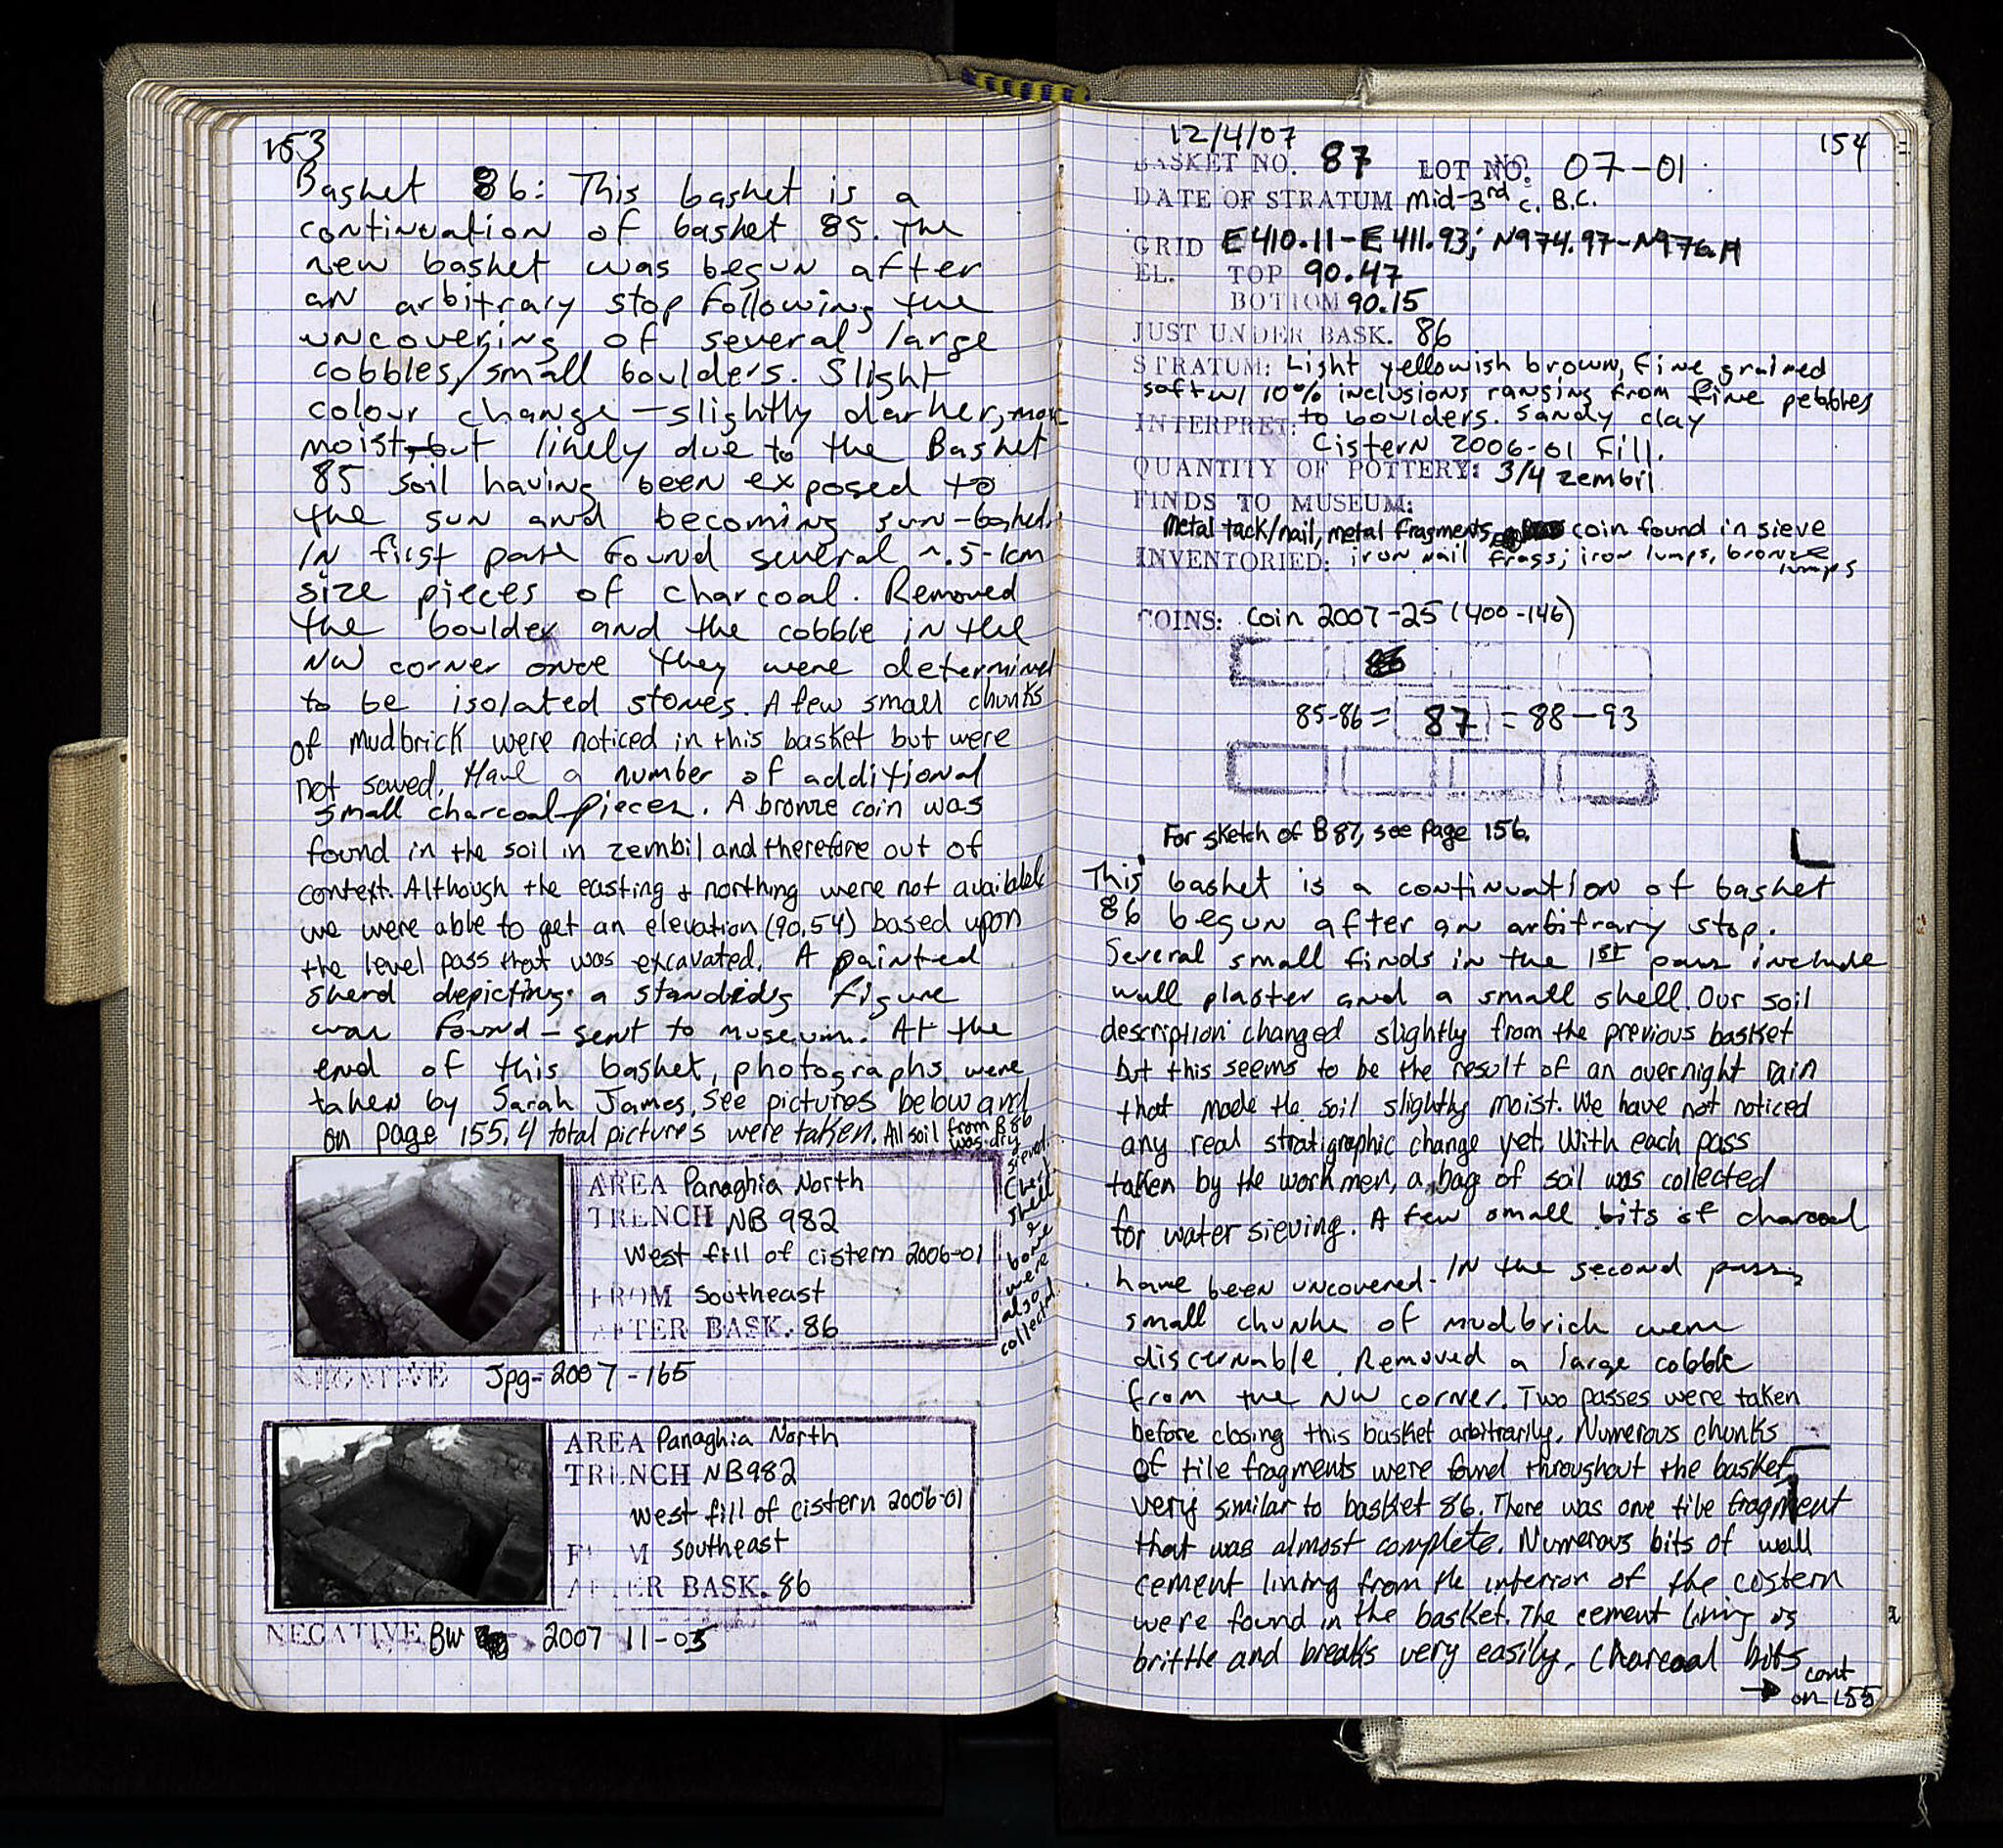 153
Basket 86: This basket is a
continuation of basket 85. The
new basket was begun after
an arbitrary stop following the
uncovering of several large
cobbles/small boulders. Slight
colour change - slightly darker, more
moist but likely due to the Basket
85 soil having been exposed to
the sun and becoming sun-baked.
In first pass found several ~.5-1cm
size pieces of charcoal. Removed
the boulder and the cobble in the
NW corner once they were determined
to be isolated stones. A few small chunks
of mudbrick were noticed in this basket but were
not saved. Have a number of additional
small charcoal pieces. A bronze coin was
found in the soil in zembil and therefore out of
context. Although the easting & northing were not available
we were able to get an elevation (90.54) based upon
the level pass that was excavated. A painted
sherd depicting a standing figure
was found - sent to museum. At the
end of this basket, photographs were
taken by Sarah James. See pictures below and
on page 155. 4 total pictures were taken. All soil from B86
was dry
sieved.
Chert,
shell
&
bone
were
also
collected.
AREA Panaghia North
TRENCH NB 982
West fill of cistern 2006-01
FROM Southeast
AFTER BASK. 86
NEGATIVE Jpg-2007-165
AREA Panaghia North
TRENCH NB982
West fill of cistern 2006-01
FROM Southeast
AFTER BASK. 86
NEGATIVE BW 2007 11-05
12/4/07
154
BASKET NO. 87 LOT NO. 07-01
DATE OF STRATUM Mid-3rd c. B.C.
GRID E410.11-E411.93; N974.97-N976.11
EL. TOP 90.47
BOTTOM 90.15
JUST UNDER BASK. 86
STRATUM: Light yellowish brown, fine grained
soft w/ 10% inclusions ranging from fine pebbles
to boulders. Sandy clay
INTERPRET: Cistern 2006-01 Fill.
QUANTITY OF POTTERY: 3/4 zembil
FINDS TO MUSEUM:
Metal tack/nail, metal fragments, coin found in sieve
INVENTORIED: iron nail frags; iron lumps, bronze
lumps
COINS: Coin 2007-25 (400-146)
85-86 = 87 = 88-93
For sketch of B87, see page 156.
This basket is a continuation of basket
86 begun after an arbitrary stop.
Several small finds in the 1st pass include
wall plaster and a small shell. Our soil
description changed slightly from the previous basket
but this seems to be the result of an overnight rain
that made the soil slightly moist. We have not noticed
any real stratigraphic change yet. With each pass
taken by the workmen, a bag of soil was collected
for water sieving. A few small bits of charcoal
have been uncovered. In the second pass,
small chunks of mudbrick were
discernable. Removed a large cobble
from the NW corner. Two passes were taken
before closing this basket arbitrarily. Numerous chunks
of tile fragments were found throughout the basket,
very similar to basket 86. There was one tile fragment
that was almost complete. Numerous bits of wall
cement lining from the interior of the cistern
were found in the basket. The cement lining is
brittle and breaks very easily. Charcoal bits cont
→ on 155